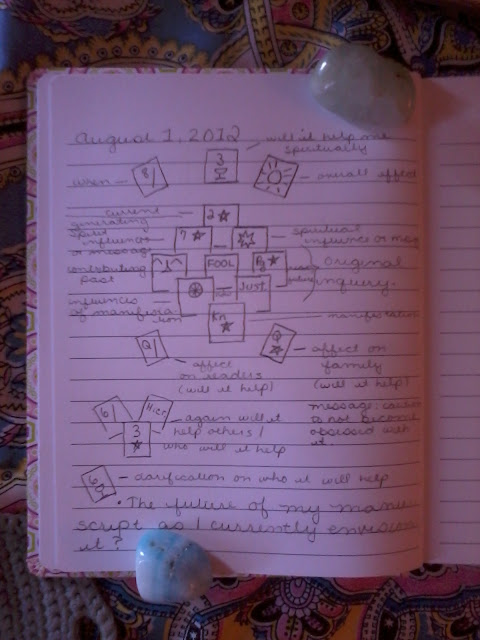 August 1, 2012
will it help me
spiritually
when —
8/
3
— overall effect
current
generating
2
spirit
influence
or message
7
spiritual
influence or msg
contributing
past
FOOL
Pg
original
inquiry.
influences
of manifesta-
tion
Just.
Kn
— manifestation
Q/
Q
affect
on readers
(will it help)
— affect on
family
(will it help)
6/
Hier
3
again will it
help others/
who will it help
message: caution
to not become
obsessed with
it
6
— clarification on who it will help
• The future of my manu
script as I currently envision
it?